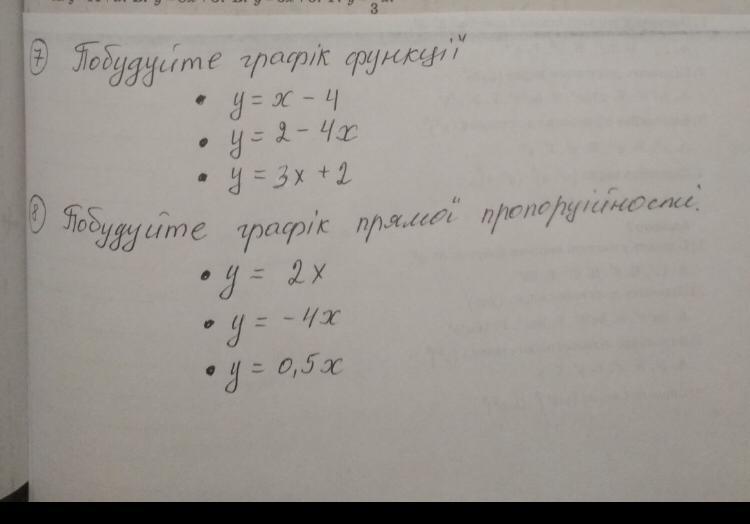 3
⑦ Побудуйте графік функції
• y = x - 4
• y = 2 - 4x
• y = 3x + 2
⑧ Побудуйте графік прямої пропоруійності.
• y = 2x
• y = -4x
• y = 0,5x